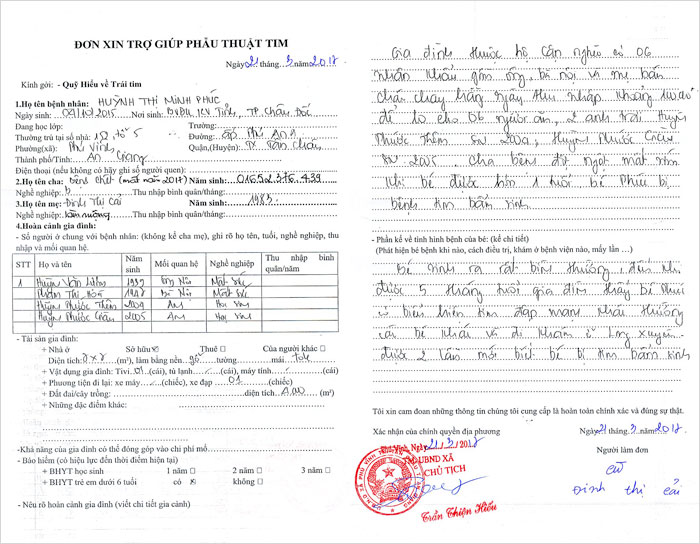 ĐƠN XIN TRỢ GIÚP PHẪU THUẬT TIM
Ngày 21 tháng 3 năm 2018
Kính gởi: - Quỹ Hiểu về Trái tim
1.Họ tên bệnh nhân: HUỲNH THỊ MINH PHÚC
Ngày sinh: 09/10/2015 Nơi sinh: TP Châu Đốc
Đang học lớp: Trường:
Thường trú tại số nhà: tổ 5 Đường: ấp Phú An A
Phường(xã): Phú Vĩnh Quận,(Huyện): TX Tân Châu
Thành phố/Tỉnh: An Giang
Điện thoại (nếu không có hãy ghi số người quen):
2.Họ tên cha: (mất năm 2017) Năm sinh: 01652.376.439
Nghề nghiệp: Thu nhập bình quân/tháng:
3.Họ tên mẹ: Đinh Thị Cái Năm sinh: 1983
Nghề nghiệp: Thu nhập bình quân/tháng:
4.Hoàn cảnh gia đình:
- Số người ở chung với bệnh nhân: (không kể cha mẹ), ghi rõ họ tên, tuổi, nghề nghiệp, thu
nhập và mối quan hệ.
STT Họ và tên Năm sinh Mối quan hệ Nghề nghiệp Thu nhập bình quân/năm
1 Huỳnh Văn 1939 Ông Nội Mất sức
Thị 1948 Bà Nội Mất sức
Huỳnh Phước Thêm 2009 Anh Học sinh
Huỳnh Phước 2005 Anh Học sinh
- Tài sản gia đình:
+ Nhà ở Sở hữu Thuê Của người khác
Diện tích: (m²), làm bằng nền: gỗ tường: mái tole
+ Vật dụng gia đình: Tivi 01 (cái), tủ lạnh (cái), máy tính (cái)
+ Phương tiện đi lại: xe máy (chiếc), xe đạp 01 (chiếc)
+ Đất đai/cây trồng: diện tích (m²)
+ Những đặc điểm khác:
-Khả năng của gia đình có thể đóng góp vào chi phí mổ
- Bảo hiểm (có hiệu lực đến thời điểm hiện tại)
+ BHYT học sinh 1 năm 2 năm 3 năm
+ BHYT trẻ em dưới 6 tuổi có không
- Nêu rõ hoàn cảnh gia đình (viết chi tiết gia cảnh)
Gia đình thuộc hộ cận nghèo có 06
nhân khẩu gồm ông, bà nội và mẹ bán
cháo chay hằng ngày thu nhập khoảng 100.000
để lo cho 06 người ăn, 2 anh trai Huỳnh
Phước Thêm SN 2009, Huỳnh Phước
SN 2005. cha bệnh đột ngột mất sớm
khi bé được hơn 1 tuổi bé Phúc bị
bệnh tim bẩm sinh
- Phần kể về tình hình bệnh của bé: (kể chi tiết)
(Phát hiện bé bệnh khi nào, cách điều trị, khám ở bệnh viện nào, mấy lần …)
Bé sinh ra rất bình thường, đến khi
được 5 tháng tuổi gia đình thấy bé Phúc
có biểu hiện tim đập mạnh khác thường
và đi khám ở Long Xuyên
được 2 lần mới biết bé bị tim bẩm sinh
Tôi xin cam đoan những thông tin chúng tôi cung cấp là hoàn toàn chính xác và đúng sự thật.
Xác nhận của chính quyền địa phương Ngày 21 tháng 3 năm 2018
Phú Vĩnh, Ngày 21/3/2018 Người làm đơn
TM.UBND XÃ
CHỦ TỊCH
Trần Thiện Hiếu
Đinh Thị Cái